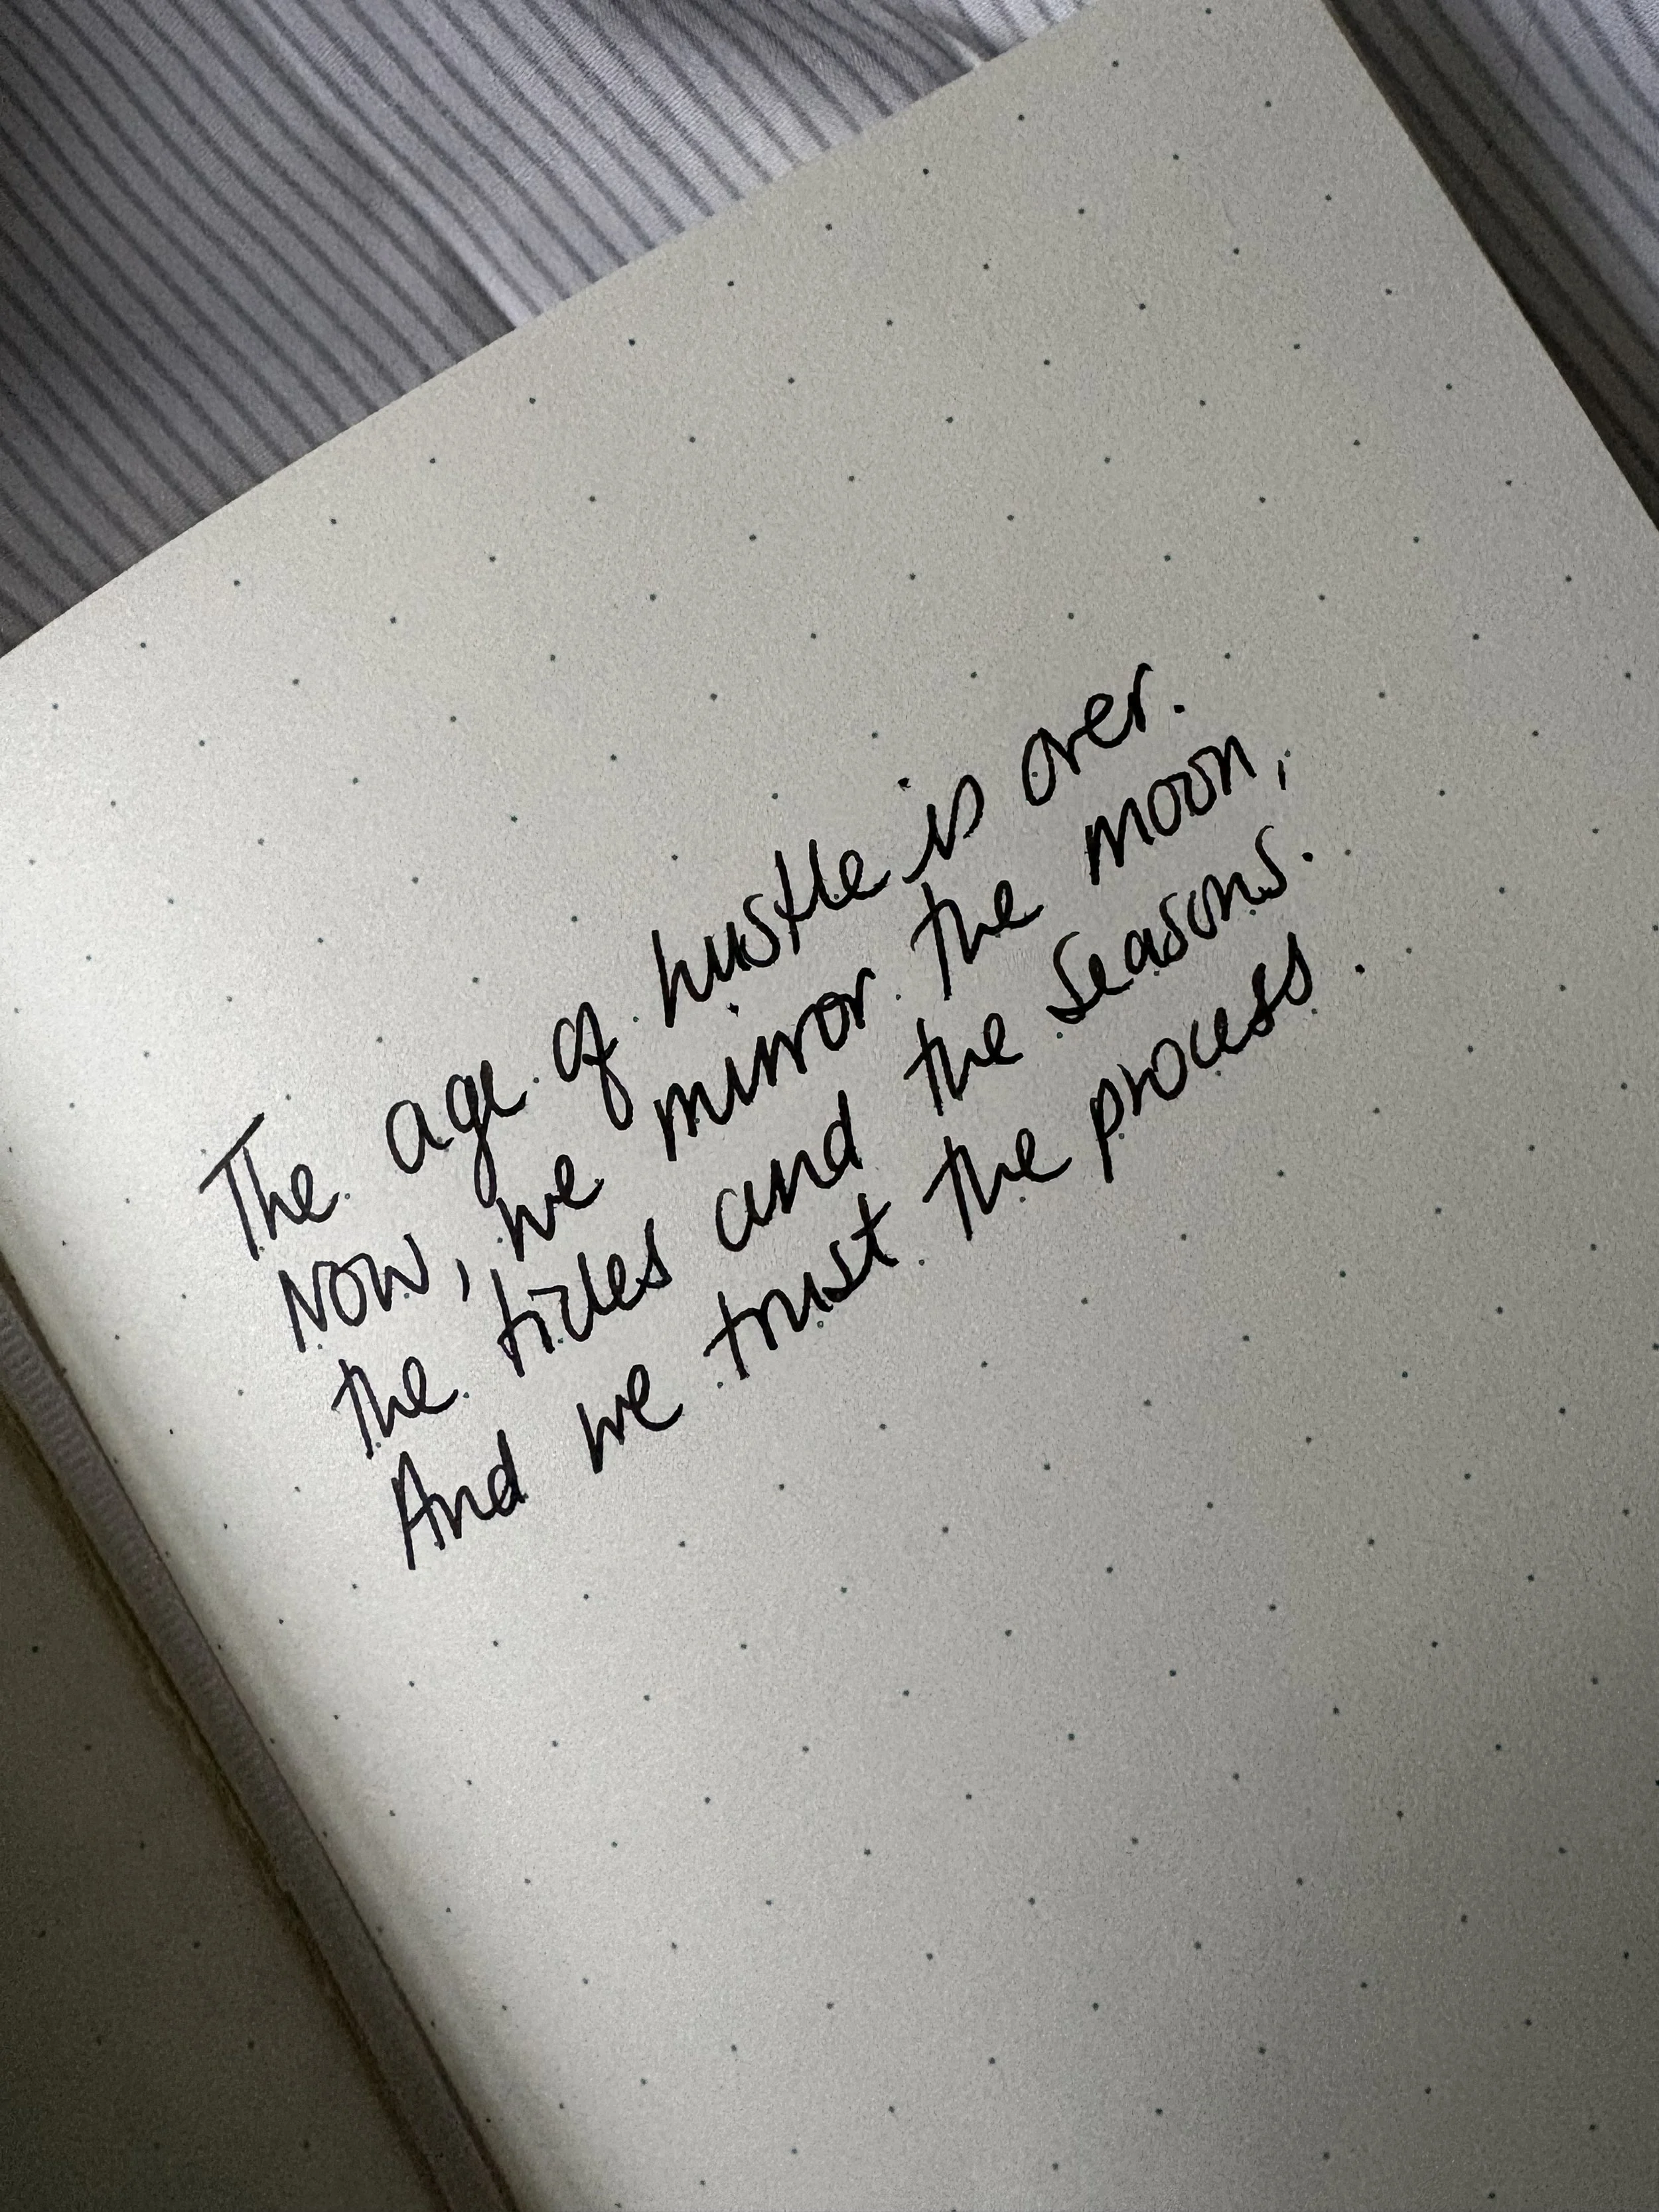 The age of hustle is over.
Now, we mirror the moon,
the tides and the seasons.
And we trust the process.